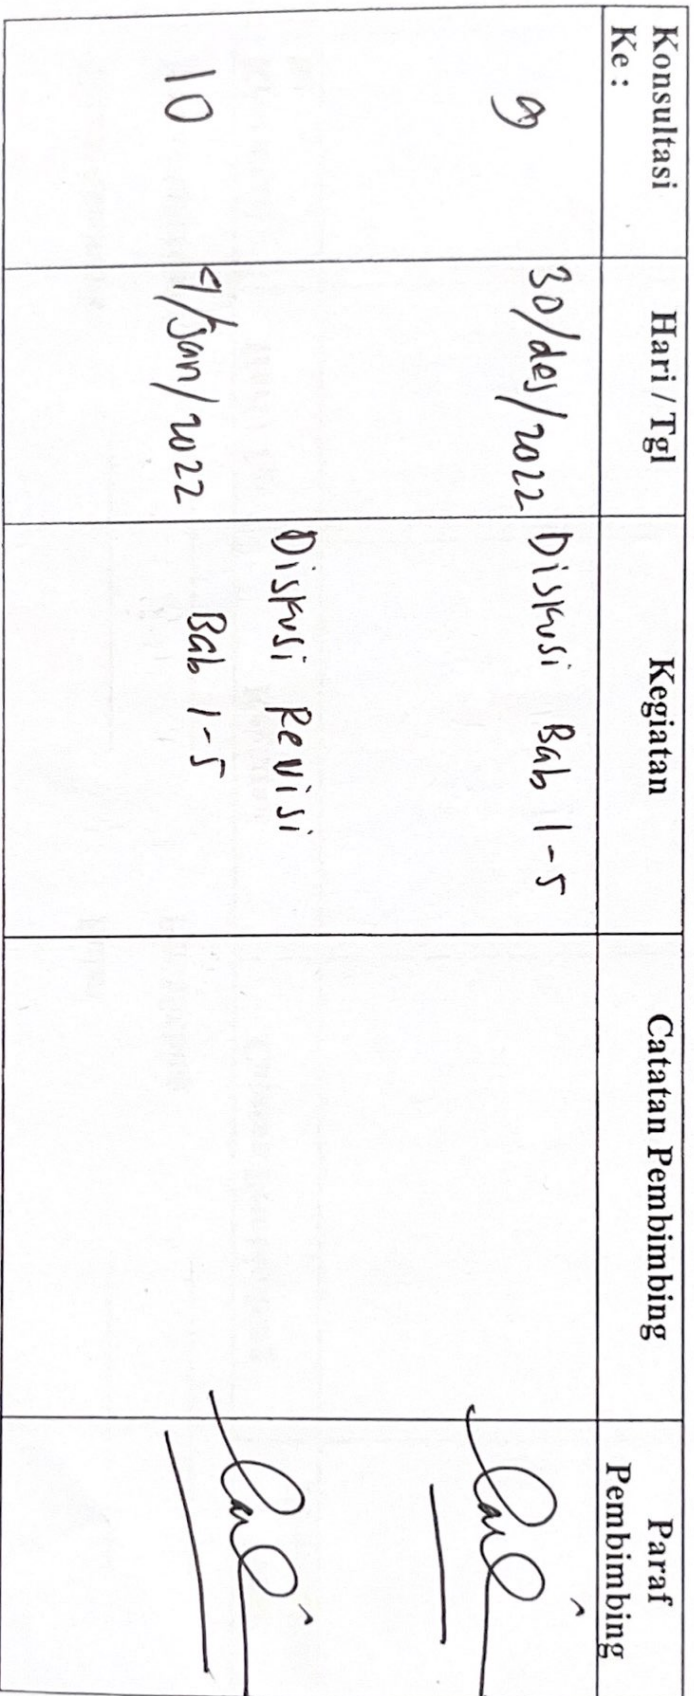 Konsultasi Ke :
Hari / Tgl
Kegiatan
Catatan Pembimbing
Paraf Pembimbing
9
30/des/2022
Diskusi Bab 1-5
10
4/Jan/2022
Diskusi Revisi
Bab 1-5